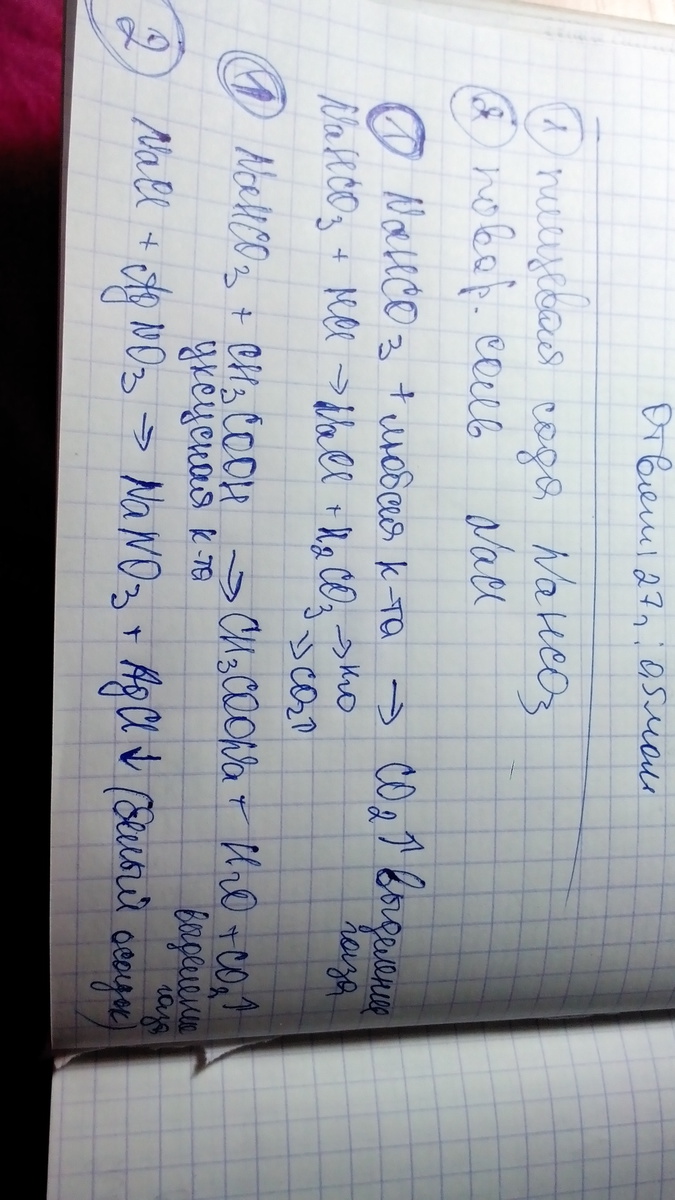 Ответ: 27г; 0,5моль
① пищевая сода NaHCO3
② повар. соль NaCl
① NaHCO3 + любая к-та → CO2↑ выделение газа
NaHCO3 + HCl → NaCl + H2CO3 → H2O
→ CO2↑
① NaHCO3 + CH3COOH → CH3COONa + H2O + CO2↑
уксусная к-та выделение газа
② NaCl + AgNO3 → NaNO3 + AgCl↓ (белый осадок)